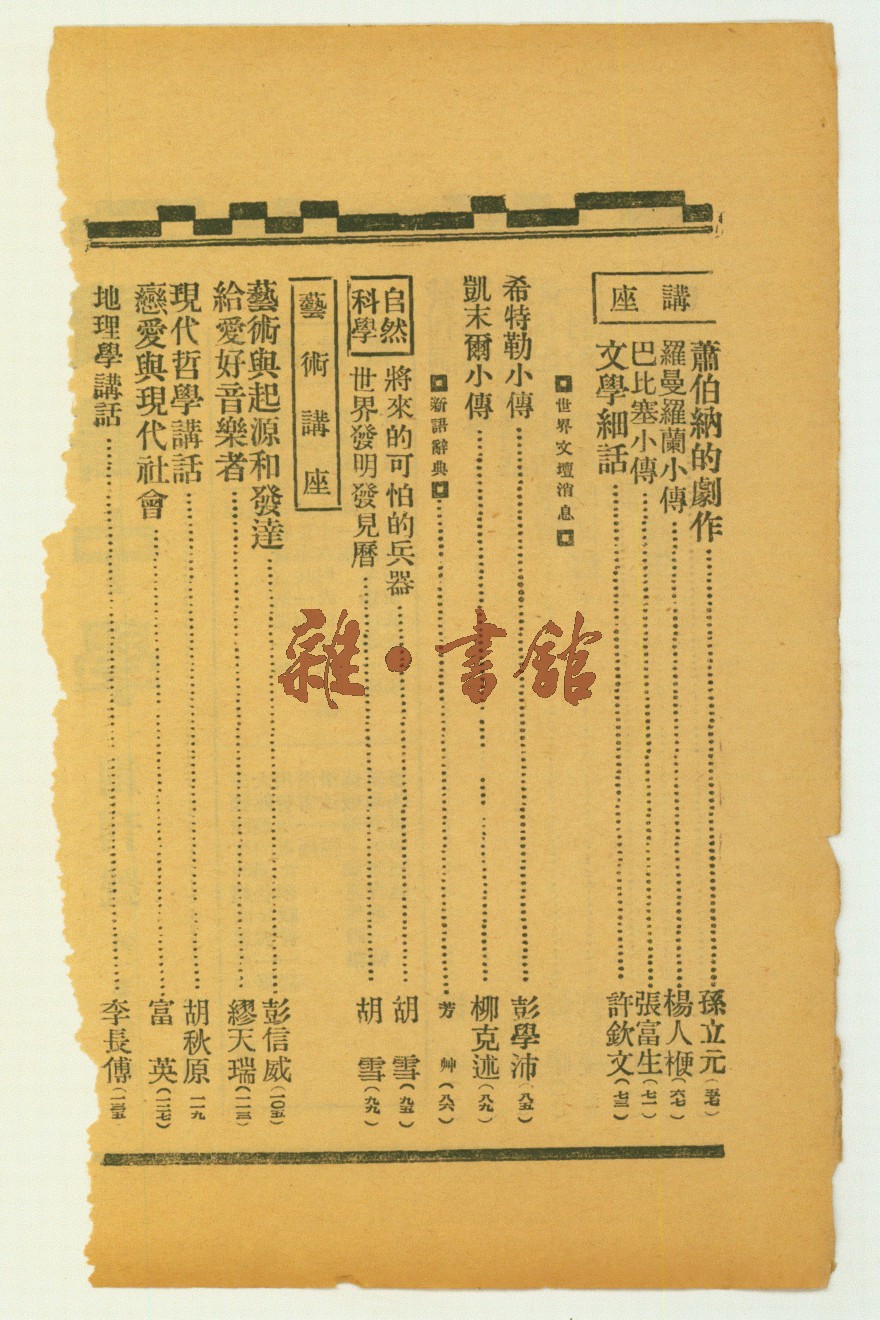 講座
蕭伯納的劇作……孫立元(五七)
羅曼羅蘭小傳……楊人楩(六七)
巴比塞小傳……張富生(七一)
文學細話……許欽文(七三)
世界文壇消息
希特勒小傳……彭學沛(八五)
凱末爾小傳……柳克述(八九)
新語辭典……芳艸(八六)
自然科學
將來的可怕的兵器……胡雪(九五)
世界發明發見曆……胡雪(九九)
藝術講座
藝術與起源和發達……彭信威(一〇五)
給愛好音樂者……繆天瑞(一一三)
現代哲學講話……胡秋原 一一九
戀愛與現代社會……富英(一二七)
地理學講話……李長傅(一三五
雜·書館